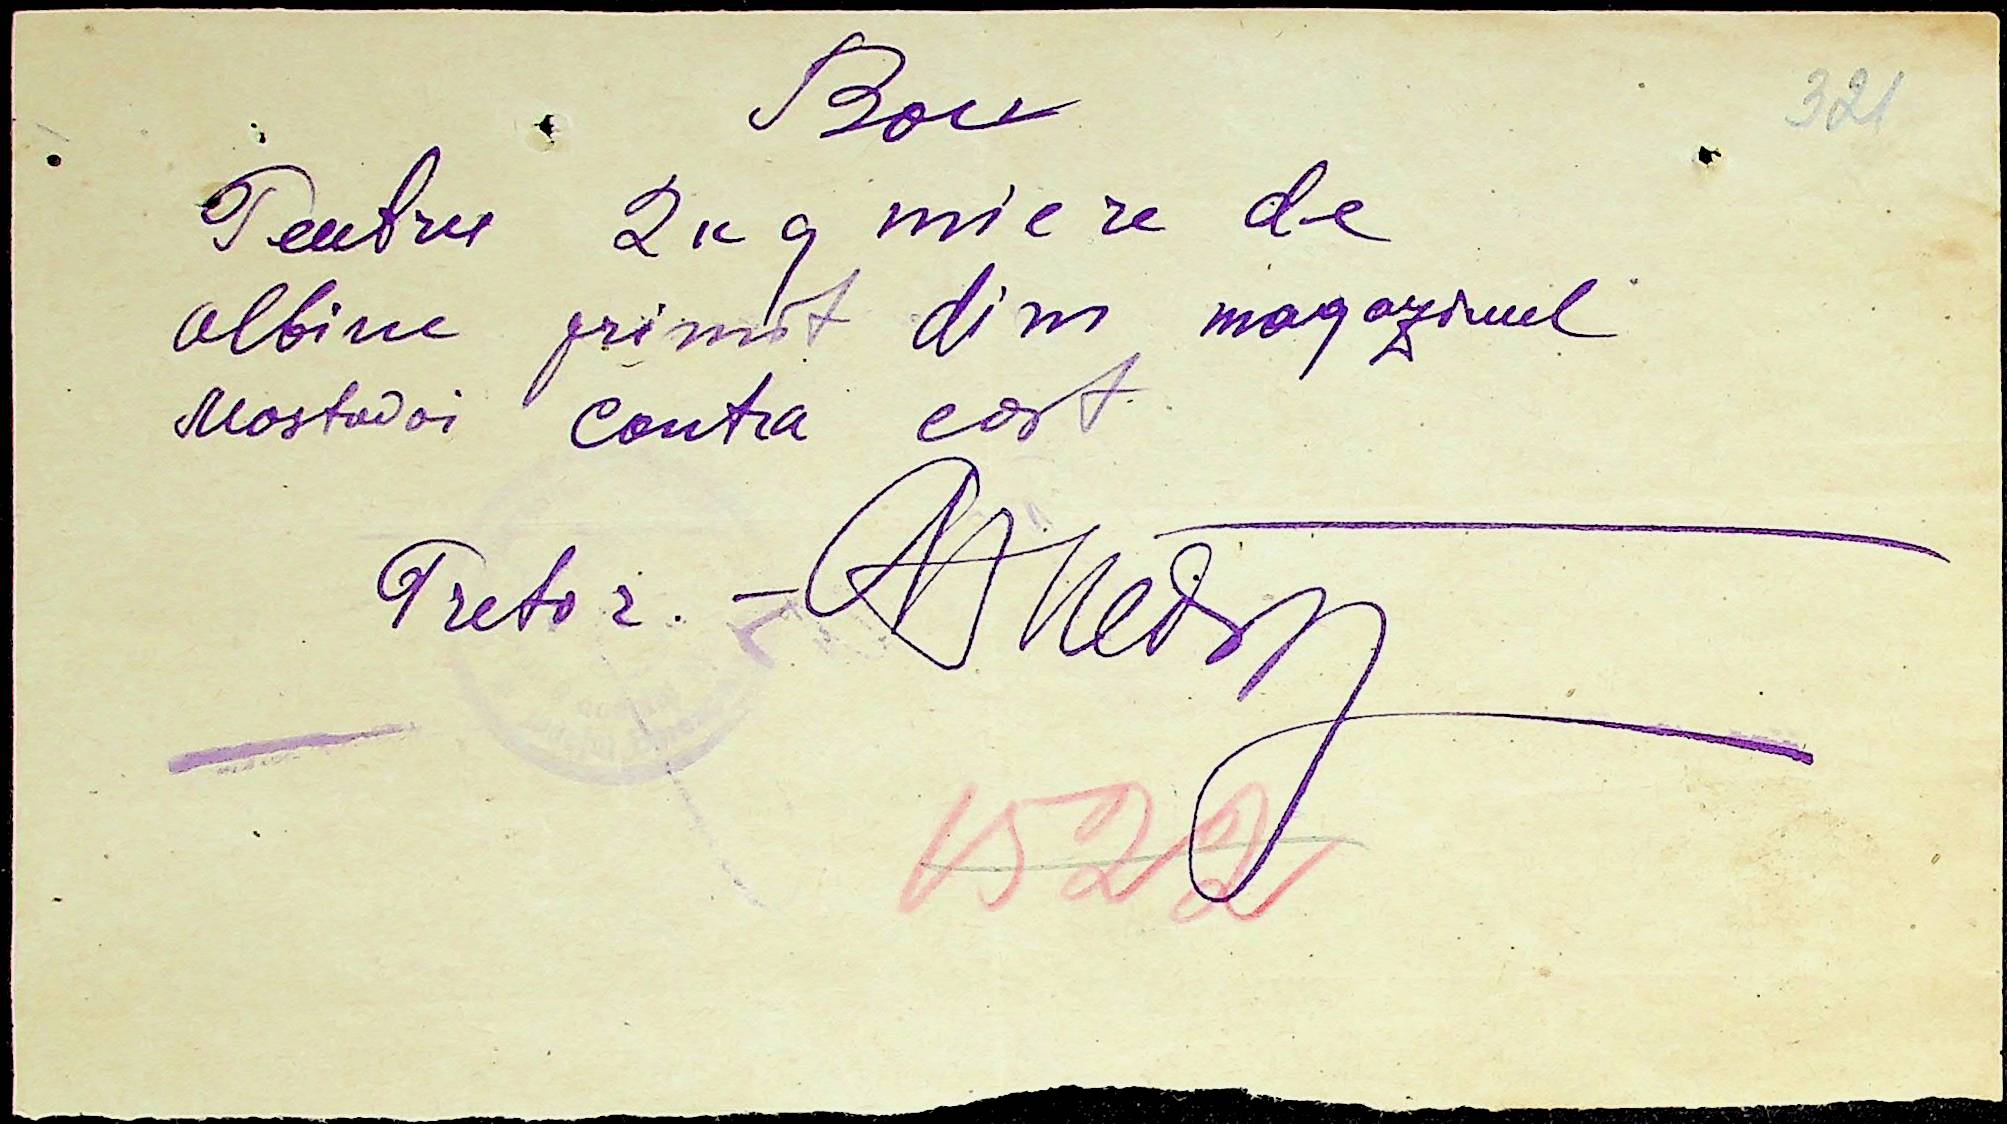 321
Bon
Pentru 2 kg miere de
albine primit din magazinul
Mostovoi contra cost
Pretor. —
1522